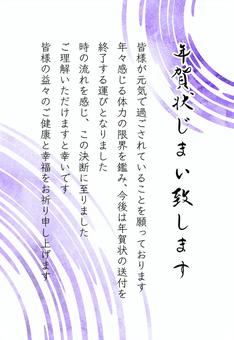 年賀状じまい致します
皆様が元気で過ごされていることを願っております
年々感じる体力の限界を鑑み、今後は年賀状の送付を
終了する運びとなりました
時の流れを感じ、この決断に至りました
ご理解いただけますと幸いです
皆様の益々のご健康と幸福をお祈り申し上げます